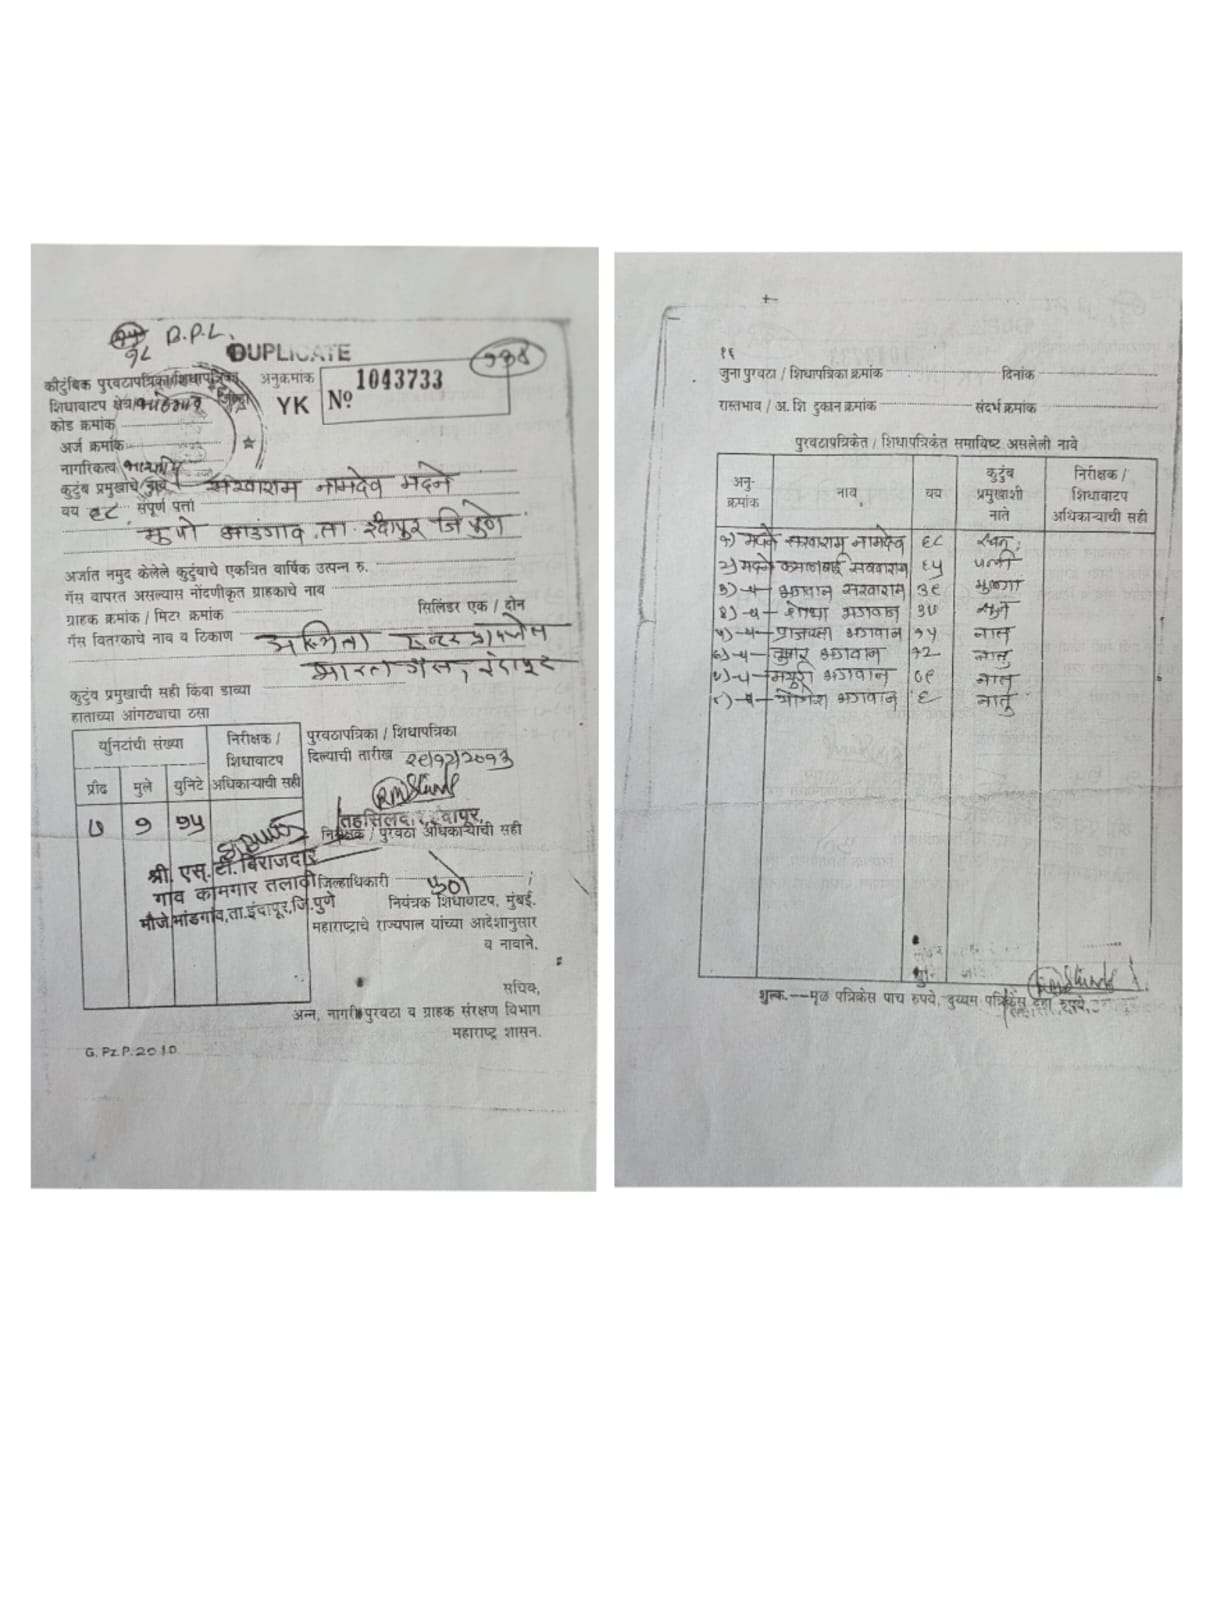 B.P.L.
१८
DUPLICATE
कौटुंबिक पुरवठापत्रिका/शिधापत्रिका
अनुक्रमांक
YK Nº 1043733
शिधावाटप क्षेत्र
कोड क्रमांक
अर्ज क्रमांक
नागरिकत्व भारतीय
कुटुंब प्रमुखाचे नाव सखाराम नामदेव मदने
वय ६८ संपूर्ण पत्ता
मु पो भाडगाव ता. इंदापूर जि पुणे
अर्जात नमुद केलेले कुटुंबाचे एकत्रित वार्षिक उत्पन्न रु.
गॅस वापरत असल्यास नोंदणीकृत ग्राहकाचे नाव
ग्राहक क्रमांक / मिटर क्रमांक सिलिंडर एक / दोन
गॅस वितरकाचे नाव व ठिकाण
भारत गॅस, इंदापूर
कुटुंब प्रमुखाची सही किंवा डाव्या
हाताच्या आंगठ्याचा टसा
युनिटांची संख्या
निरीक्षक /
शिधावाटप
अधिकाऱ्याची सही
प्रौढ मुले युनिटे
७ १ १५
पुरवठापत्रिका / शिधापत्रिका
दिल्याची तारीख
तहसिलदार, इंदापूर,
निरीक्षक / पुरवठा अधिकाऱ्याची सही
श्री. एस. टी. बिराजदार
गाव कामगार तलाठी
मौजे भांडगांव,ता.इंदापूर,जि.पुणे
जिल्हाधिकारी पुणे
नियंत्रक शिधावाटप, मुंबई.
महाराष्ट्राचे राज्यपाल यांच्या आदेशानुसार
व नावाने.
सचिव,
अन्न, नागरी पुरवठा व ग्राहक संरक्षण विभाग
महाराष्ट्र शासन.
G. Pz. P. 2010
१६
जुना पुरवठा / शिधापत्रिका क्रमांक दिनांक
रास्तभाव / अ. शि दुकान क्रमांक संदर्भ क्रमांक
पुरवठापत्रिकेत / शिधापत्रिकेत समाविष्ट असलेली नावे
अनु-
क्रमांक
नाव
वय
कुटुंब
प्रमुखाशी
नाते
निरीक्षक /
शिधावाटप
अधिकाऱ्याची सही
१) मदने सखाराम नामदेव ६८ स्वतः
२) मदने कमलाबाई सखाराम ६५ पत्नी
३) -॥- भगवान सखाराम ३९ मुलगा
४) -॥- शोभा भगवान ३७ सून
५) -॥- प्राजक्ता भगवान १५ नात
६) -॥- तुषार भगवान १२ नातु
७) -॥- मयुरी भगवान ०९ नात
८) -॥- योगेश भगवान ६ नातु
शुल्क.---मूळ पत्रिकेस पाच रुपये, दुय्यम पत्रिकेस दहा रुपये.